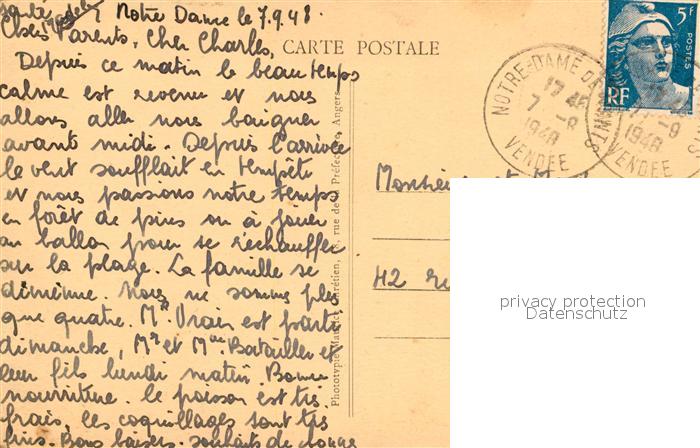 santé
Notre Dame le 7.9.48.
Chers Parents, Cher Charles,
Depuis ce matin le beau temps
calme est revenu et nous
allons aller nous baigner
avant midi. Depuis l'arrivée
le vent soufflait en tempête
et nous passions notre temps
en forêt de pins ou à jouer
au ballon pour se réchauffer
sur la plage. La famille se
diminue. Nous ne sommes plus
que quatre. Mr Vrain est parti
dimanche, Mr et Mme Batailler et
leur fils lundi matin. Bonne
nourriture. le poisson est très
frais, les coquillages sont très
fins. Bons baisers. souhaits de bonne
CARTE POSTALE
Phototypie Maurice Chrétien, rue de la Préfecture, Angers
5F
POSTES
RF
NOTRE-DAME DE MONTS
17 45
7 -9
1948
VENDEE
1948
VENDEE
Monsieur et
42 Ru
privacy protection
Datenschutz